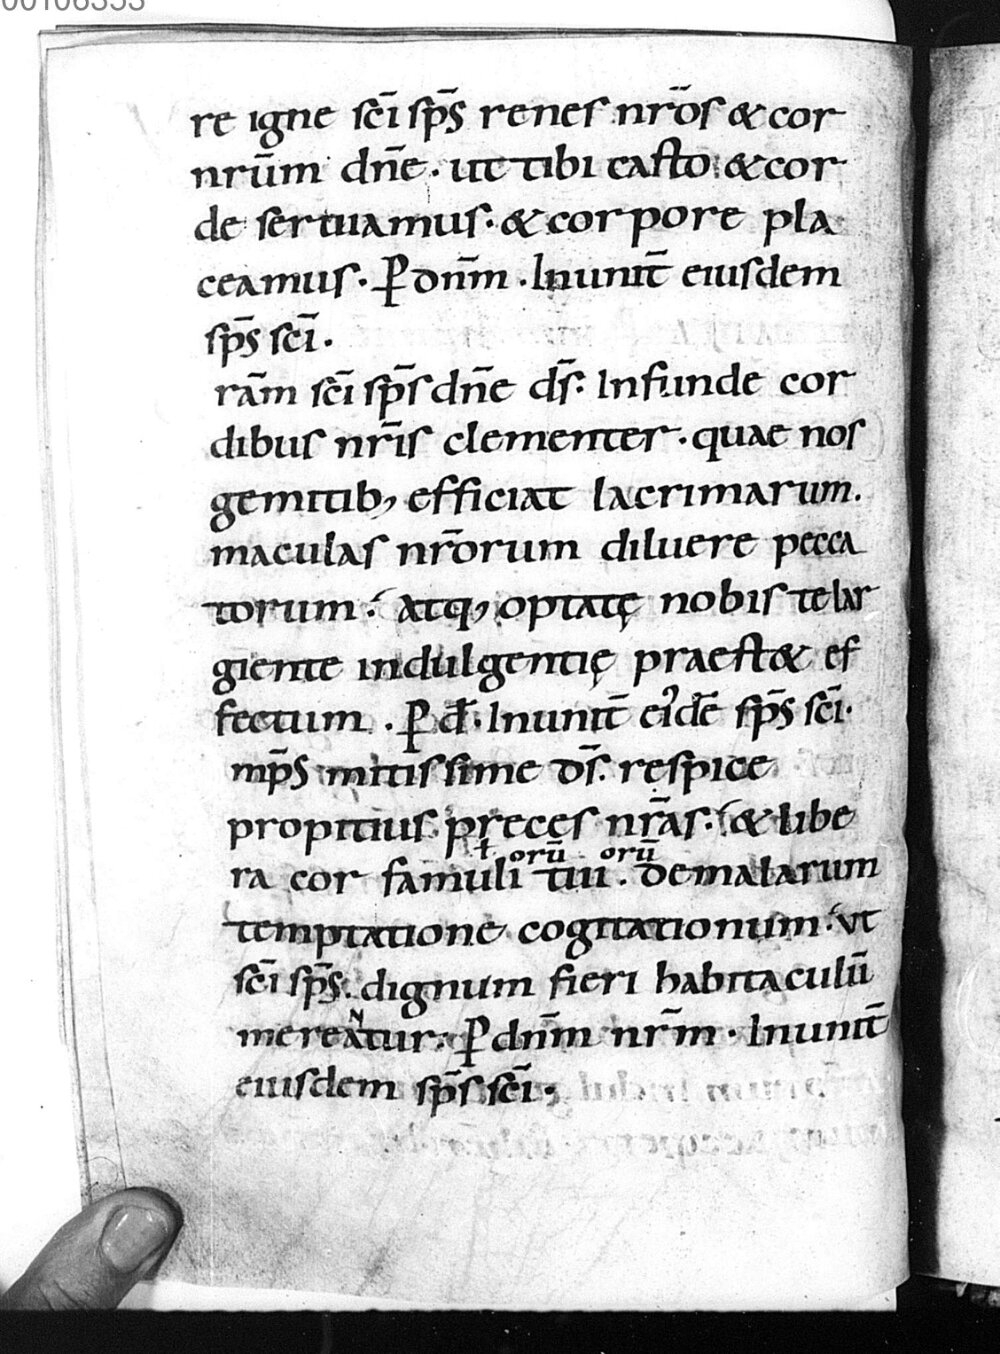 00106353
re igne sc̄i sp̄s renes nr̄os & cor
nr̄um dn̄e. ut tibi casto & cor
de seruiamus. & corpore pla
ceamus. P dn̄m. In unit̄ eiusdem
sp̄s sc̄i.
rām sc̄i sp̄s dn̄e d̄s. Infunde cor
dibus nr̄is clementer. quae nos
gemitib; efficiat lacrimarum.
maculas nr̄orum diluere pecca
torum. atq; optatę nobis te lar
giente indulgentię praest& ef
fectum. P d. In unit̄ ei'dē sp̄s sc̄i.
mp̄s mitissime d̄s. respice
propitius preces nr̄as. & libe
ł orū orū
ra cor famuli tui. de malarum
temptatione cogitationum. ut
sc̄i sp̄s. dignum fieri habitaculū
N
mereatur. P dn̄m nr̄m. In unit̄
eiusdem sp̄s sc̄i.